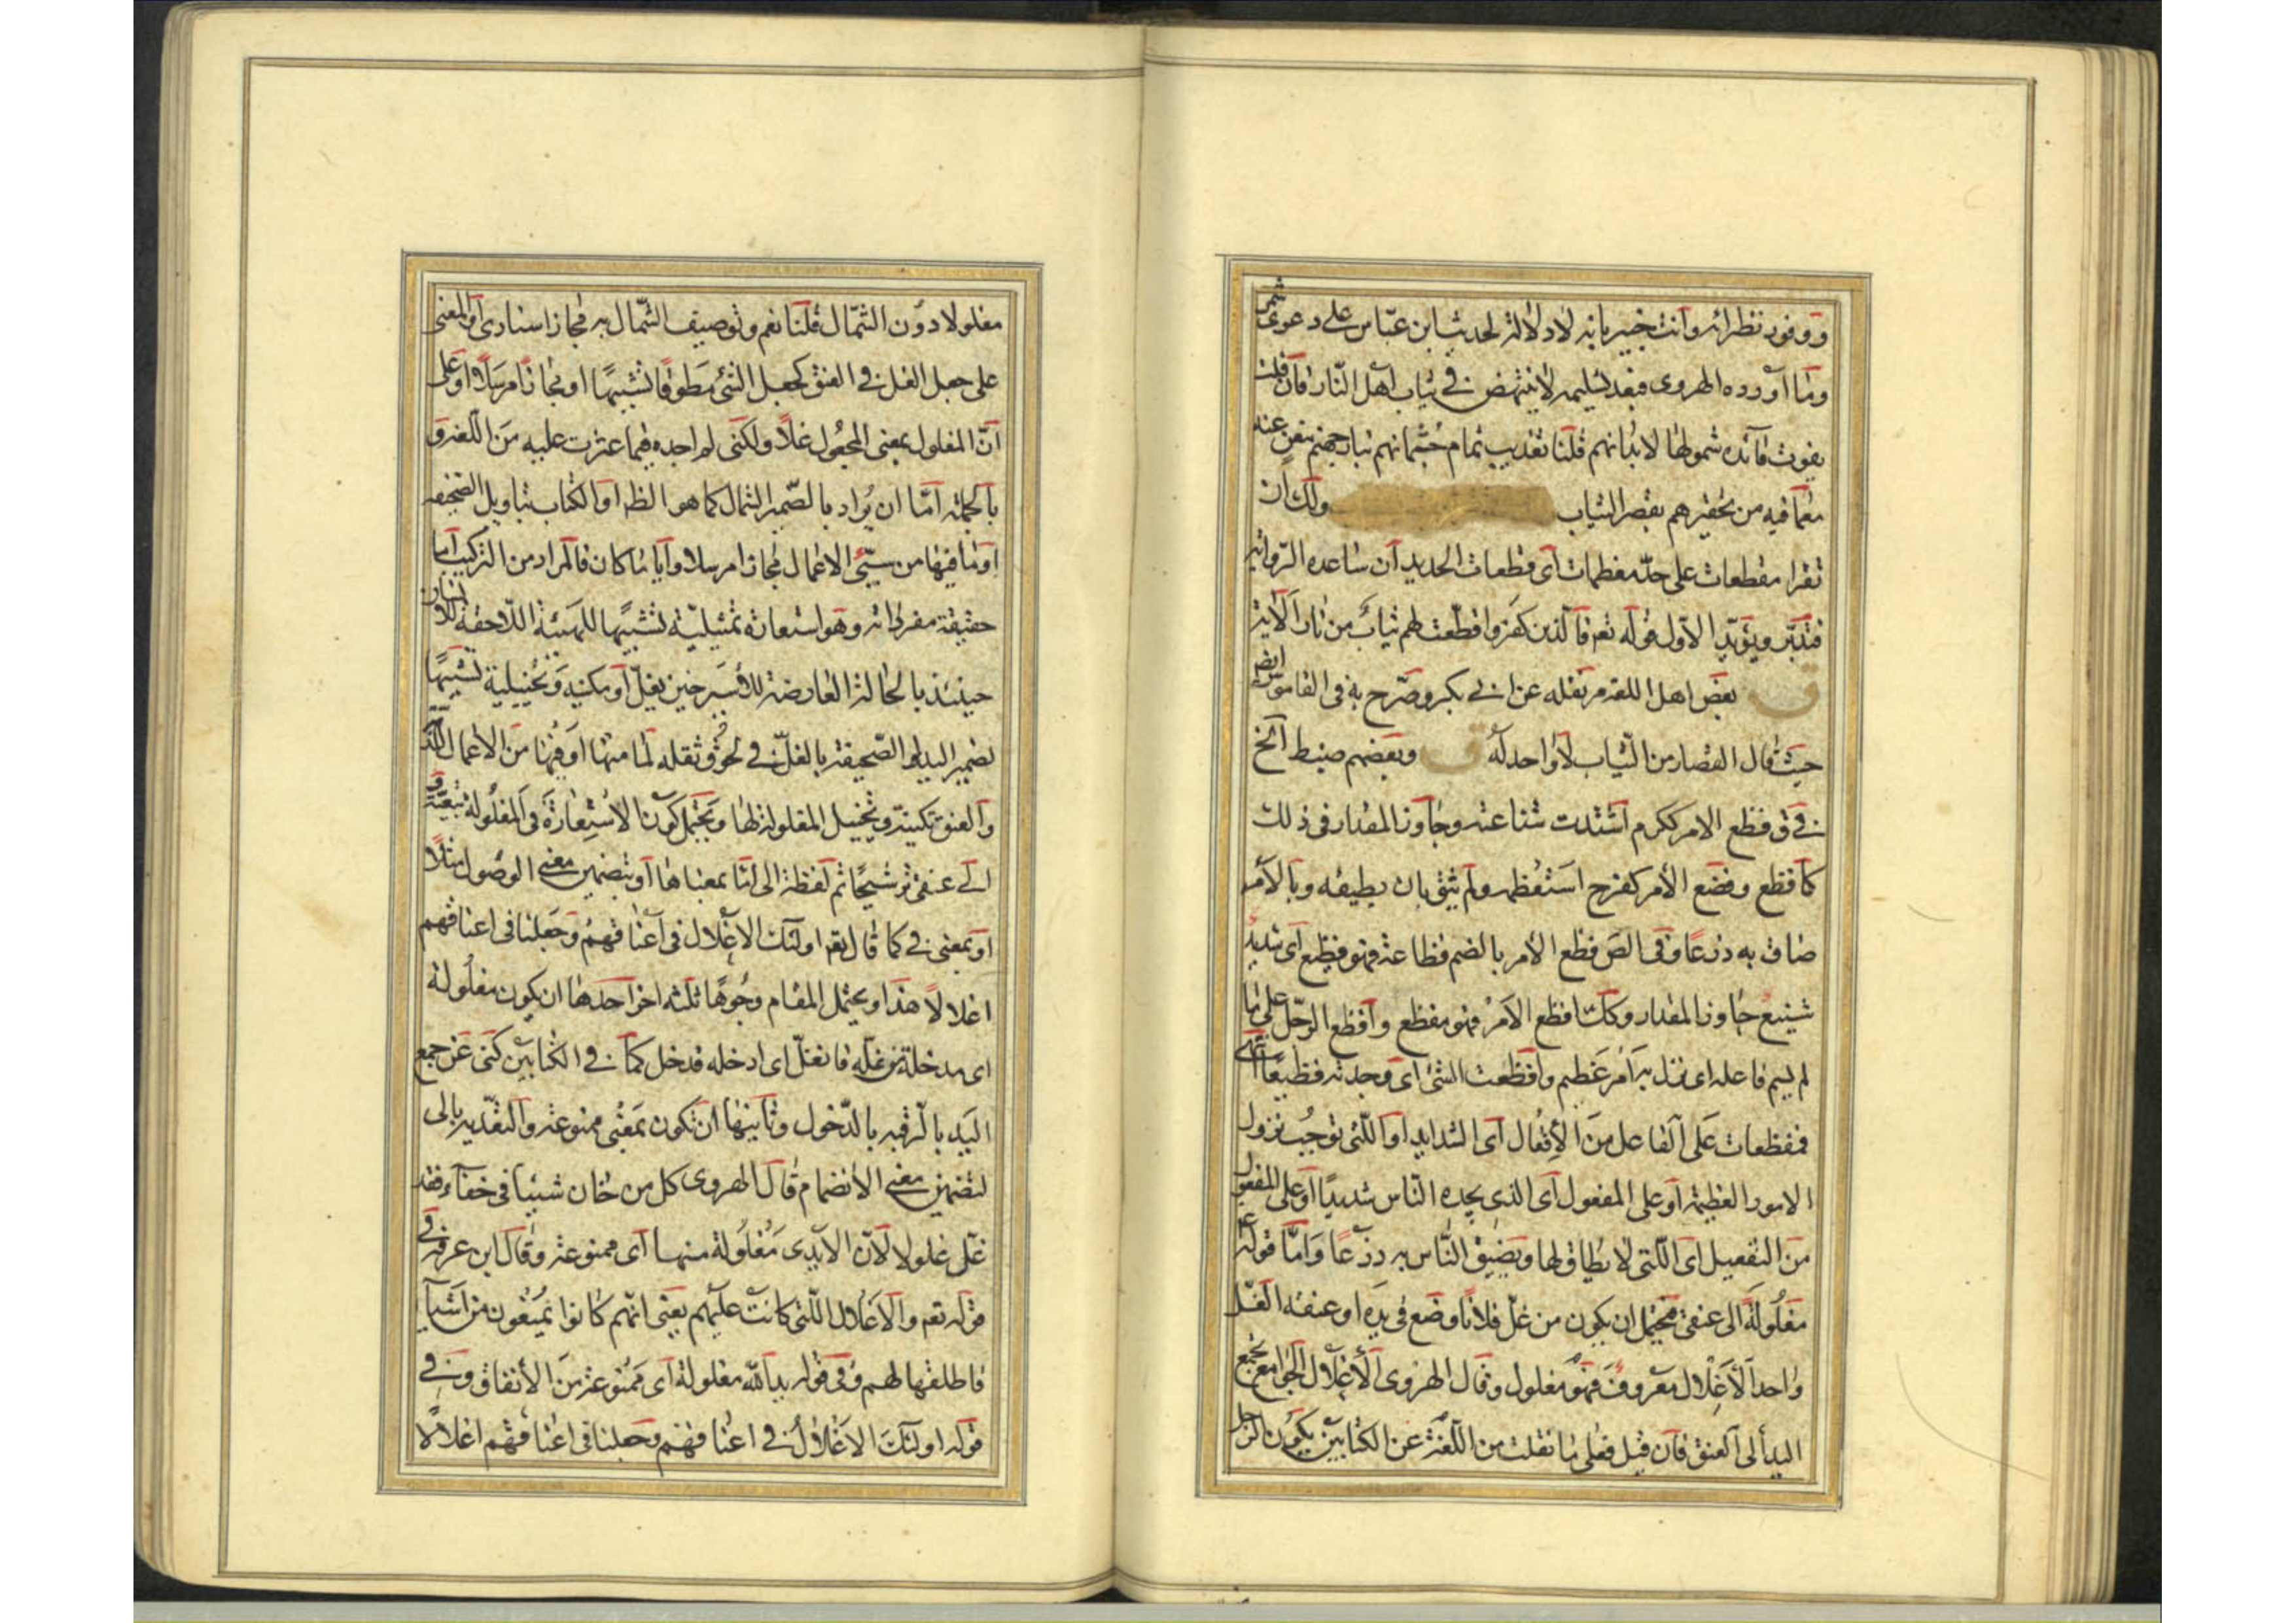 ووفور نظرائه وانت خبير بانه لا دلالة لحديث ابن عبّاس على دعوى
وما آورده الهروى فبعد تسليمه لا ينتهض فى ثياب اهل النّار فآن قلت
يفوت فآئدة شمولها لابدانهم قلنا تعذيب تمام جثمانهم بنار جهنم عنه
معما فيه من تحقيرهم بقصر الثياب ولك ان
تقرا مقطعات على حدّ معظمات آى قطعات الحديد آن ساعده الرّواية
فتدبّر ويؤيّد الاوّل قوله تعم فآلذين كفروا قطّعت لهم ثيابٌ من نار الآية
بعض اهل اللغة نقله عن ابى بكر وصرّح به فى القاموس ايضا
حيث قال القصار من الثّياب لا واحد له وبعضهم ضبط آلخ
فى ق فظع الامر ككرم آشتدت شناعته وجاوز المقدار فى ذلك
كآفظع وفضع الأمر كفرح استعظمه ولم يثق بان يطيقه وبالأمر
ضاق به ذرعًا وفى الص فظع الأمر بالضم فظاعة فهو فظيع آى شديدٌ
شنيع جاوز المقدار وكك افظع الأمرُ فهو مفظع وآفظع الرّجل على ما
لم يسم فاعله اى نزل به آمر عظيم وافظعت الشئ اى وجدته فظيعًا آنتهى
فمفظعات على الفاعل من الأفعال آى الشدايد آو اللّتى توجب نزول
الامور العظيمة آو على المفعول آى الذى يجده النّاس شديدًا آو على المفعول
من التفعيل اى اللّتى لا يطاق لها ويضيق النّاس به ذرعًا وامّا قوله ع
مغلولة الى عنقى فيحتمل ان يكون من غلّ فلانًا وضع فى يده او عنقه الغلّ
واحد الأغلال معروف فهو مغلول وقال الهروى الأغلال الجوامع تجمع
اليد الى العنق فآن قيل فعلى ما نقلت من اللّغة عن الكتابين يكون الرجل
مغلولا دون الشّمال قلنا نعم وتوصيف الشّمال به مجاز اسنادى آو المعنى
على جعل الغل فى العنق كجعل الشئ مطوقًا تشبيهًا او مجازًا مرسلاً او على
انّ المغلول بمعنى المجعول غلاً ولكنى لم اجده فيما عثرت عليه من اللّغة و
بالجملة آمّا ان يُراد بالضّمير الشمال كما هو الظ آو الكتاب بتاويل الصّحيفة
او ما فيها من سيّئ الاعمال مجازا مرسلا وآيا ما كان فالمراد من التركيب آما
حقيقة مفرداته وهو استعارة تمثيليّة تشبيهًا للهيئة اللّاحقة للانسان
حينئذ بالحالة العارضة للأسير حين يغلّ آو مكنية وتخييلية تشبيهًا
لضمير اليد او الصّحيفة بالغلّ فى لحوق ثقله لما منها آو فيها من الاعمال
والعنق تكينة وتخييل المغلولة لها ويحتمل كون الاستعارة فى المغلولة تبعيّة و
الى عنقى ترشيحًا ثم لفظة الى امّا بمعناها او بتضمين معنى الوصول مثلاً
او بمعنى فى كما قال تعم اولئك الأغلال فى آعناقهم وجعلنا فى اعناقهم
اغلالاً هذا ويحتمل المقام وجوهًا ثلثه اخر احدها ان يكون مغلولة
اى مدخلة من غلّه فانغلّ اى ادخله فدخل كما فى الكتابين كنى عن جمع
اليد بالرقبة بالدّخول وثآنيها ان تكون بمعنى ممنوعة والتعدّيه بالى
لتضمين معنى الانضمام قال الهروى كل من خان شيئا فى خفآء فقد
غلّ غلولا لآنّ الآيدى مغلولة منها آى ممنوعة وقال ابن عرفة فى
قوله تعم والآغلال اللّتى كانت عليهم يعنى انّهم كانوا يُمنعون من اشيآء
فاطلقها لهم وفى قوله يد اللّه مغلولة آى ممنوعة من الأنفاق وفى
قوله اولئك الأغلال فى اعناقهم وجعلنا فى اعناقهم اغلالاً